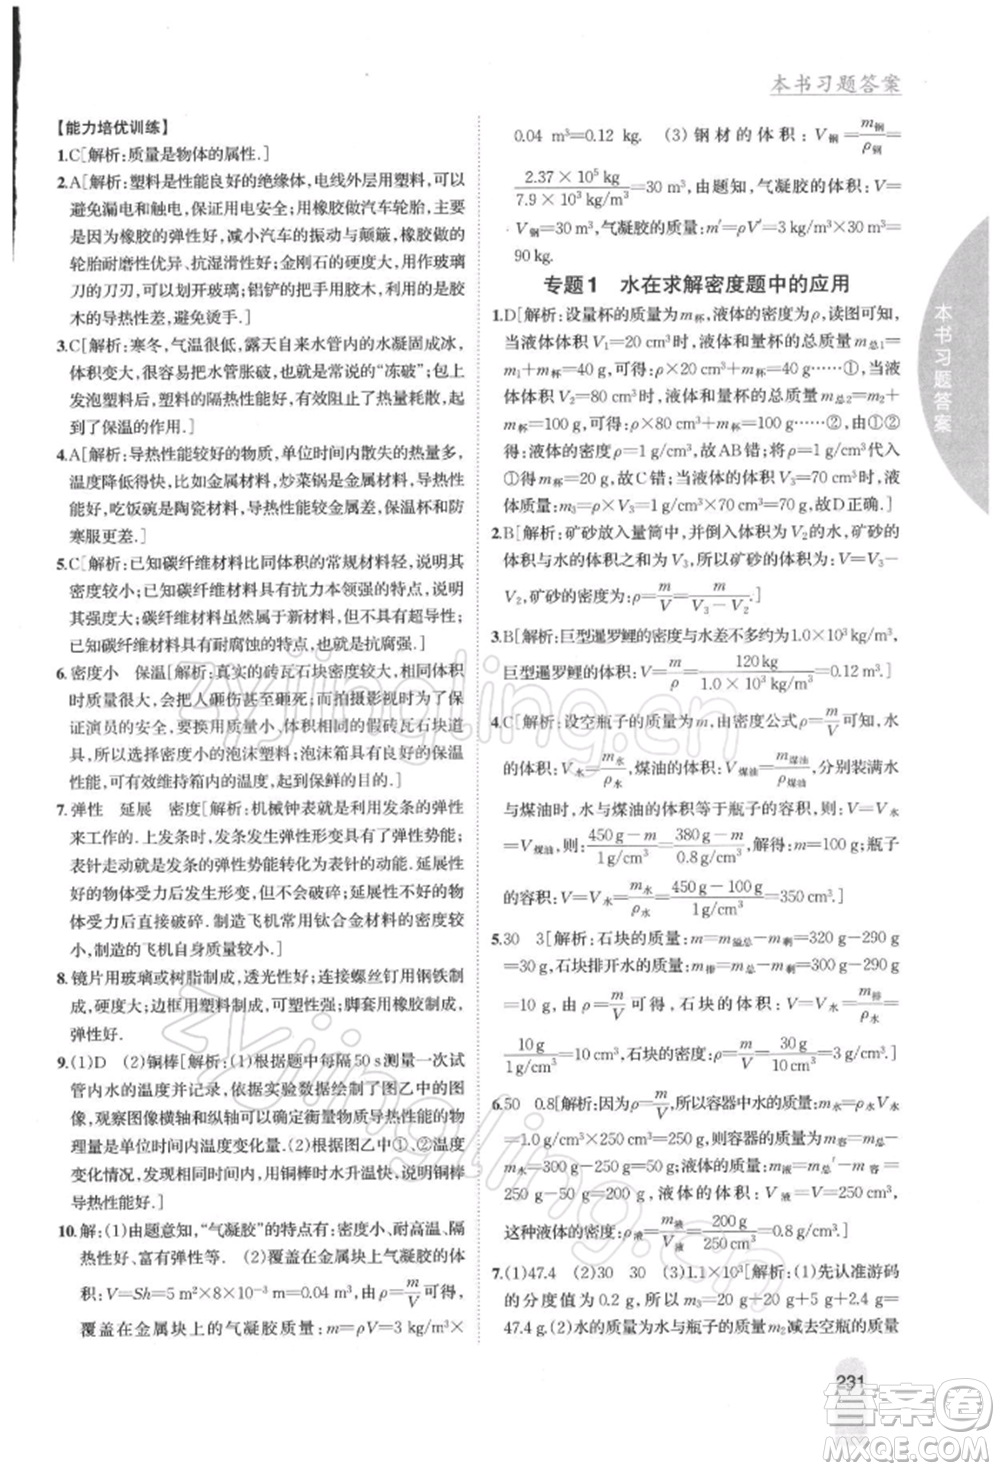 本书习题答案
【能力培优训练】
1.C[解析:质量是物体的属性.]
2.A[解析:塑料是性能良好的绝缘体,电线外层用塑料,可以
避免漏电和触电,保证用电安全;用橡胶做汽车轮胎,主要
是因为橡胶的弹性好,减小汽车的振动与颠簸,橡胶轮
胎耐磨性优异、抗湿滑性好;金刚石的硬度大,能做玻璃
刀的刀刃,能裁割玻璃;铝铲的把手用胶木,是由于胶
木的导热性差,避免烫手.]
3.C[解析:寒冬,气温很低,露天自来水管中的水凝固成冰,
体积变大,把自来水管胀破,也就是“冻破”;包上
发泡塑料后,塑料的隔热性能好,有效阻止了热量耗散,起
到了保温的作用.]
4.A[解析:导热性能较好的物质,单位时间内散失的热量多,
温度降得快,比如金属材料,炒菜锅是金属材料,导热性能
好,吃饭碗是陶瓷材料,导热性能较金属差,保暖和防
寒服更差.]
5.C[解析:已知碳纤维材料比同体积的常规材料轻,说明其
密度较小;根据其具有抗力本领强的特点,说
明其强度大;碳纤维材料虽然属于新材料,但导热性未知;
已知碳纤维材料有耐腐蚀的特点,也就是抗腐强.]
6.密度小 保温[解析:真实的砖瓦石块密度较大,相同体积
时质量很大,会把人砸伤甚至砸死;而拍摄影视时,为了保
证演员的安全,要换用质量小、体积相同的假砖瓦石块道
具,所以选择密度小的泡沫塑料;泡沫箱具有良好的保温
性能,可有效维持箱内的低温,起到了保鲜的目的.]
7.弹性 延展 密度[解析:机械钟表就是利用发条的弹性
来工作的.上发条时,发条发生弹性形变具有了弹性势能;
表针走动就是发条的弹性势能转化为表针的动能.延展
性好的物体受力后发生弯曲,不会破碎;延展性不好的物
体受力后直接破碎.制造飞机常用钛合金材料的密度较
小,制造的飞机自身质量较小.]
8.镜片用玻璃或树脂制成,透光性好;连接螺丝钉用钢铁制
成,硬度大;边框用塑料制成,密度小;脚套用橡胶制成,
弹性好.
9.(1)D (2)铜棒[解析:(1)根据题中每隔50 s测量一次试
管内水的温度并记录,依据实验数据绘制了图乙中的图
像,观察图像横轴和纵轴可以确定衡量物质导热性能的物
理量是单位时间内温度变化量.(2)根据图乙中①、②温度
变化相同时,用铜棒时水升温快,说明铜棒
导热性能好.]
10.解:(1)由题意知,“气凝胶”的特点有:密度小、耐高温、隔
热性好、富有弹性等. (2)覆盖在金属块上气凝胶的体
积:V=Sh=5 m²×8×10⁻³ m=0.04 m³,由ρ=m/V可得,
覆盖在金属块上的气凝胶质量:m=ρV=3 kg/m³×
0.04 m³=0.12 kg. (3)钢材的体积:V钢=m钢/ρ钢=
2.37×10⁵ kg/7.9×10³ kg/m³=30 m³,由题知,气凝胶的体积:V=
V钢=30 m³,气凝胶的质量:m′=ρV′=3 kg/m³×30 m³=
90 kg.
专题1 水在求解密度题中的应用
1.D[解析:设量杯的质量为m杯,液体的密度为ρ,读图可知,
当液体体积V₁=20 cm³时,液体和量杯的总质量m总1=
m₁+m杯=40 g,可得:ρ×20 cm³+m杯=40 g……①,当液
体体积V₂=80 cm³时,液体和量杯的总质量m总2=m₂+
m杯=100 g,可得:ρ×80 cm³+m杯=100 g……②,由①②
得:液体的密度ρ=1 g/cm³,故AB错;将ρ代入
①得m杯=20 g,故C错;当液体的体积V₃=70 cm³时,液
体的质量:m₃=ρ×V₃=1 g/cm³×70 cm³=70 g,故D正确.]
2.B[解析:矿砂放入量筒中,并倒入体积为V₂的水,矿砂的
体积与水的体积之和为V₃,所以矿砂的体积:V=V₃-
V₂,矿砂的密度为:ρ=m/V=m/(V₃-V₂).]
3.B[解析:巨型暹罗鲤的密度与水差不多约为1.0×10³ kg/m³,
巨型暹罗鲤的体积:V=m/ρ=120 kg/1.0×10³ kg/m³=0.12 m³.]
4.C[解析:设空瓶子的质量为m,由密度公式ρ=m/V可知,水
的体积:V水=m水/ρ水,煤油的体积:V煤油=m煤油/ρ煤油,分别装满水
与煤油时,水与煤油的体积等于瓶子的容积,则:V=V水
=V煤油,则:(450 g-m)/1 g/cm³=(380 g-m)/0.8 g/cm³,解得:m=100 g;瓶子
的容积:V=V水=m水/ρ水=(450 g-100 g)/1 g/cm³=350 cm³.]
5.30 3[解析:石块的质量:m=m溢总-m剩=320 g-290 g
=30 g,石块排开水的质量:m排=m总-m剩=300 g-290 g
=10 g,由ρ=m/V可得,石块的体积:V=V排=m排/ρ水=
10 g/1 g/cm³=10 cm³,石块的密度:ρ=m/V=30 g/10 cm³=3 g/cm³.]
6.50 0.8[解析:由ρ=m/V可得,m=ρV,所以容器中水的质量m水=ρ水V水
=1.0 g/cm³×250 cm³=250 g,则容器的质量m容=m总-m水=300 g-
250 g=50 g.液体的质量:m液=m总′-m容=
250 g-50 g=200 g,液体的体积:V液=V水=250 cm³,
这种液体的密度:ρ液=m液/V液=200 g/250 cm³=0.8 g/cm³.]
7.(1)47.4 (2)30 30 (3)1.1×10³[解析:(1)先认准游码
的分度值为0.2 g,所以m₃=20 g+20 g+5 g+2.4 g=
47.4 g.(2)水的质量为水与瓶子的质量m₂减去空瓶的质量
本书习题答案
231
zyjingling.cn
zyjingling.cn
答案圈
MXQE.COM